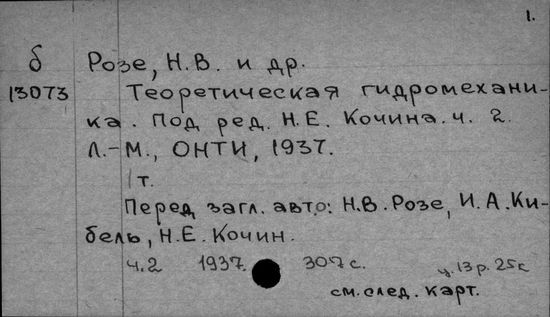 1.
б Розе, Н.В. и др.
13073 Теоретическая гидромехани-
ка. Под ред. Н.Е. Кочина. ч. 2.
Л.-М., ОНТИ, 1937.
т.
Перед загл. авто: Н.В. Розе, И.А. Ки-
бель, Н.Е. Кочин.
ч.2 1937. 307 с. ц. 13 р. 25 к
см. след. карт.